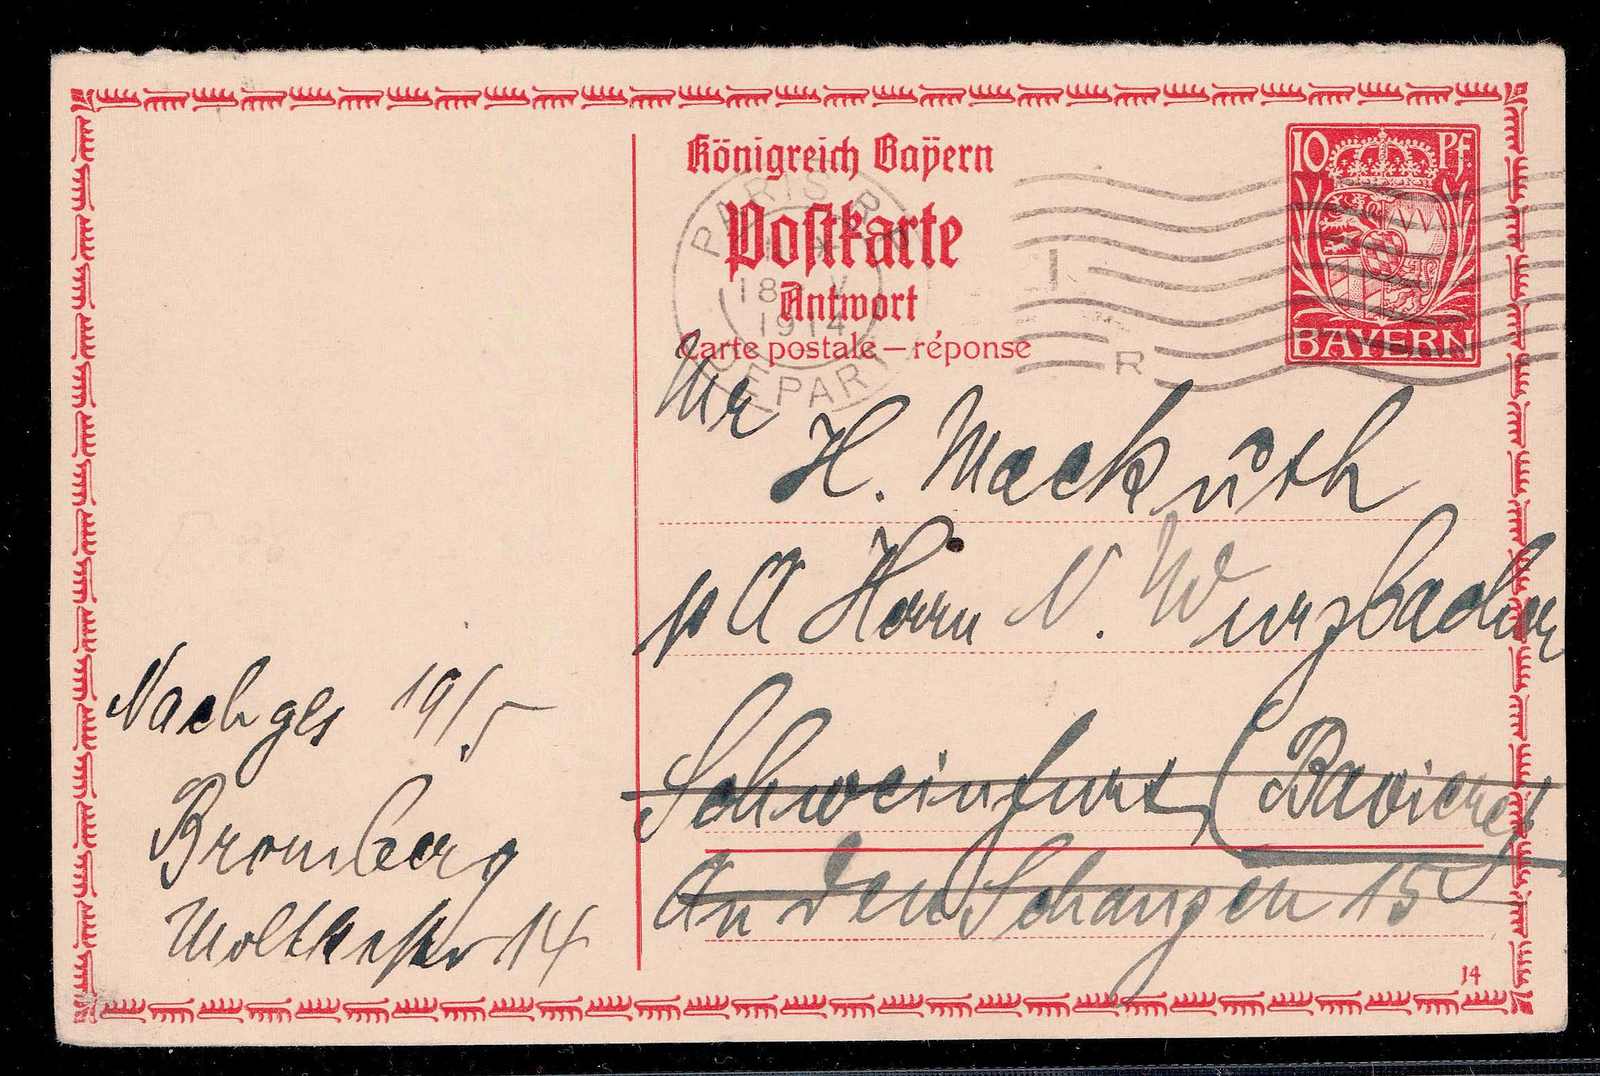 Königreich Bayern
Postkarte
Antwort
Carte postale — réponse
10 Pf.
BAYERN
PARIS R.P.
18 V
1914
DEPART
R
Mr
H. Mackuth
p A Herrn N. Wurzbacher
Schweinfurt (Baviere)
An den Schanzen 15
Nachges 19/5
Bromberg
Moltkestr 14
14